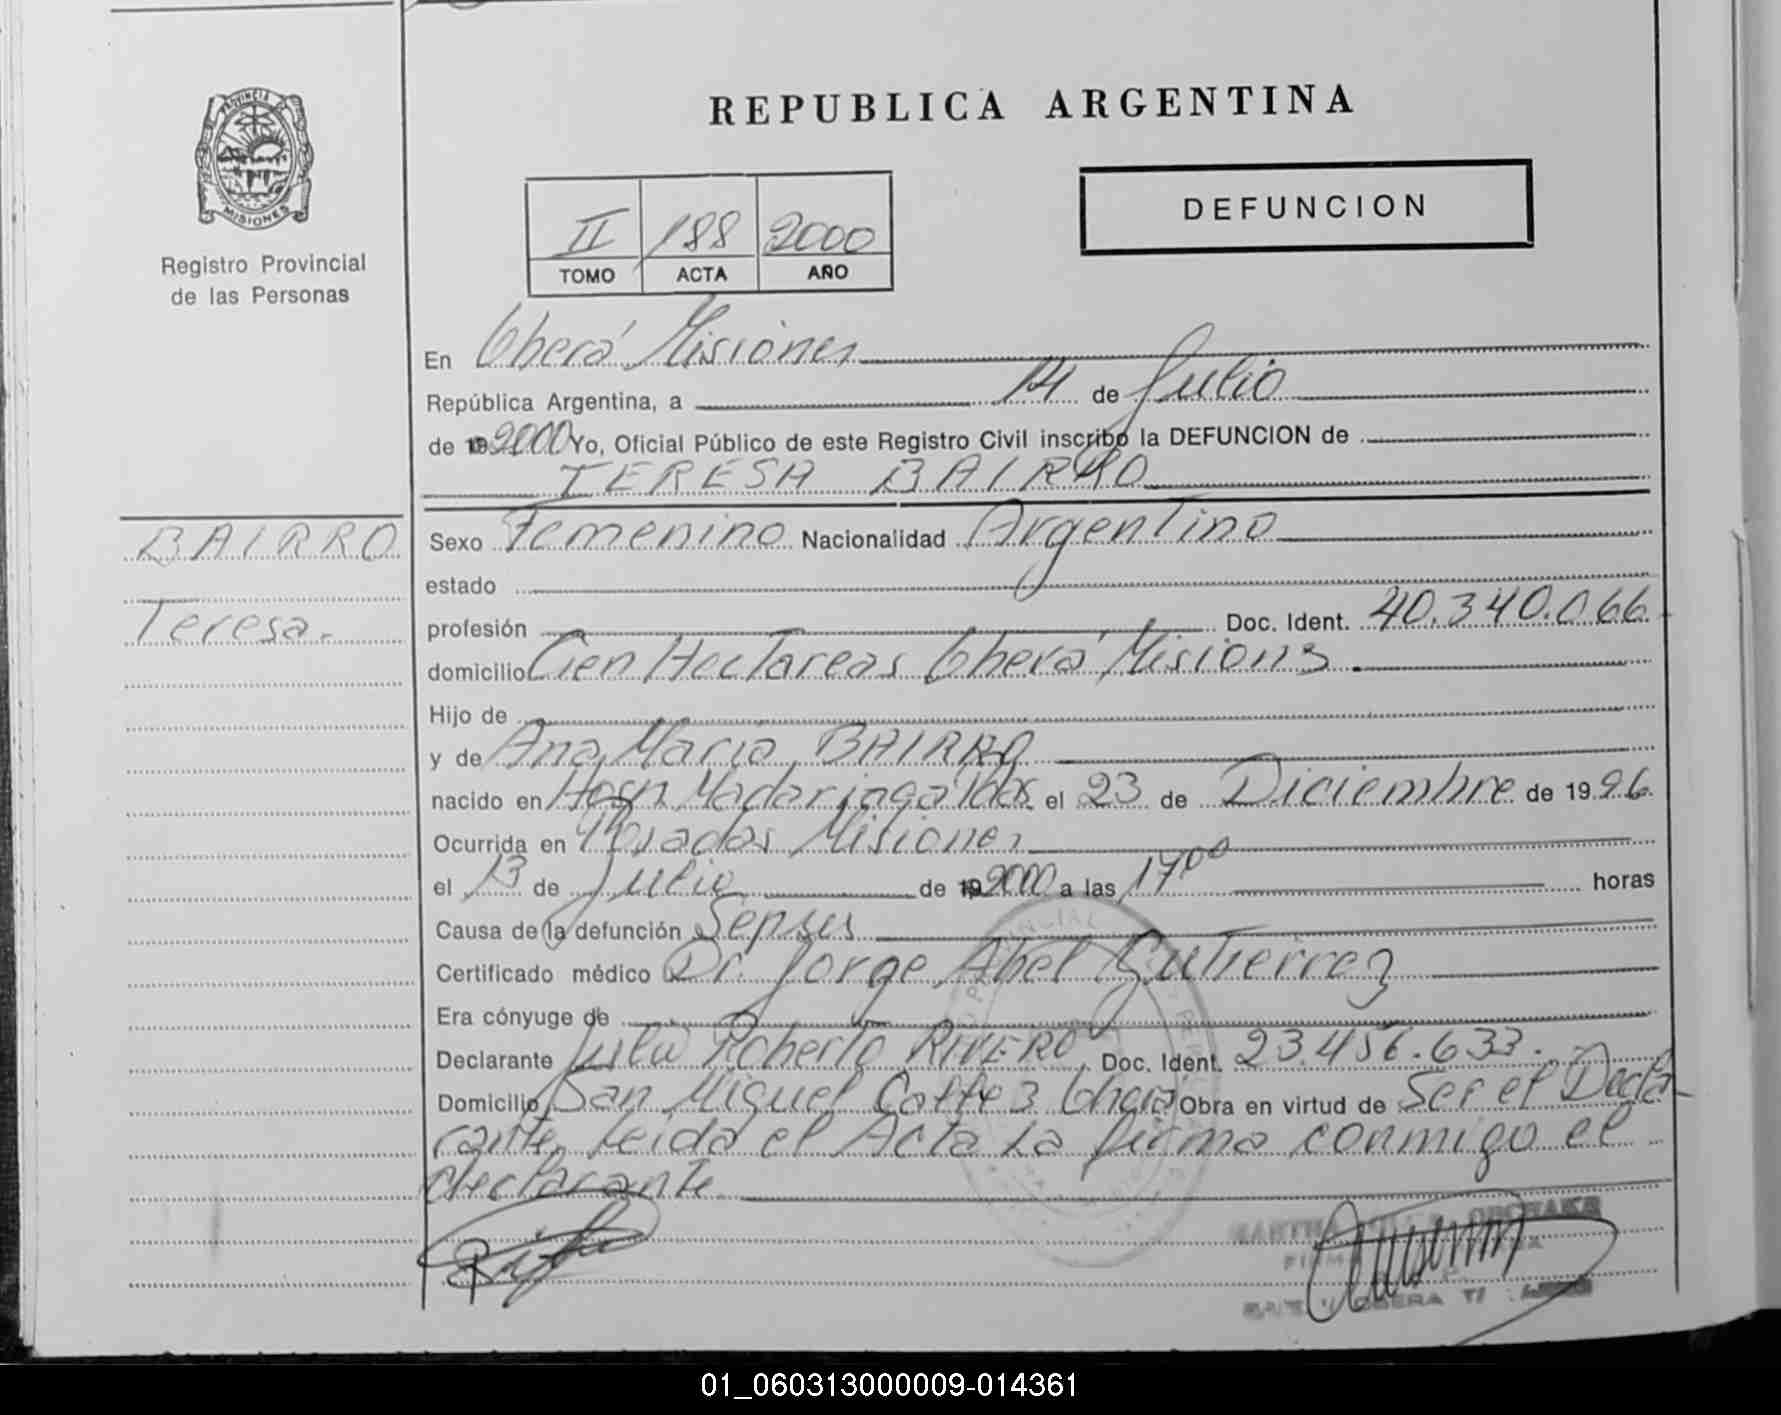 REPUBLICA ARGENTINA
PROVINCIA DE
MISIONES
Registro Provincial
de las Personas
II 188 2000
TOMO ACTA AÑO
DEFUNCION
En Oberá Misiones
República Argentina, a 14 de Julio
de 19 2000 Yo, Oficial Público de este Registro Civil inscribo la DEFUNCION de
TERESA BAIRRO
BAIRRO
Teresa.
Sexo Femenino Nacionalidad Argentino
estado
profesión Doc. Ident. 40.340.066
domicilio Cien Hectareas Oberá Misions
Hijo de
y de Ana Maria BAIRRO
nacido en Hosp Madariaga Pdas el 23 de Diciembre de 1996.
Ocurrida en Posadas Misiones
el 13 de Julio de 19 2000 a las 17 00 horas
Causa de la defunción Sepsis
Certificado médico Dr. Jorge Abel Gutierrez
Era cónyuge de
Declarante Julio Roberto RIVERO Doc. Ident. 23.456.633.
Domicilio San Miguel Oberá Obra en virtud de Ser el Decla-
rante, leida el Acta la firma conmigo el
declarante
MARTHA
OBERA
01_060313000009-014361